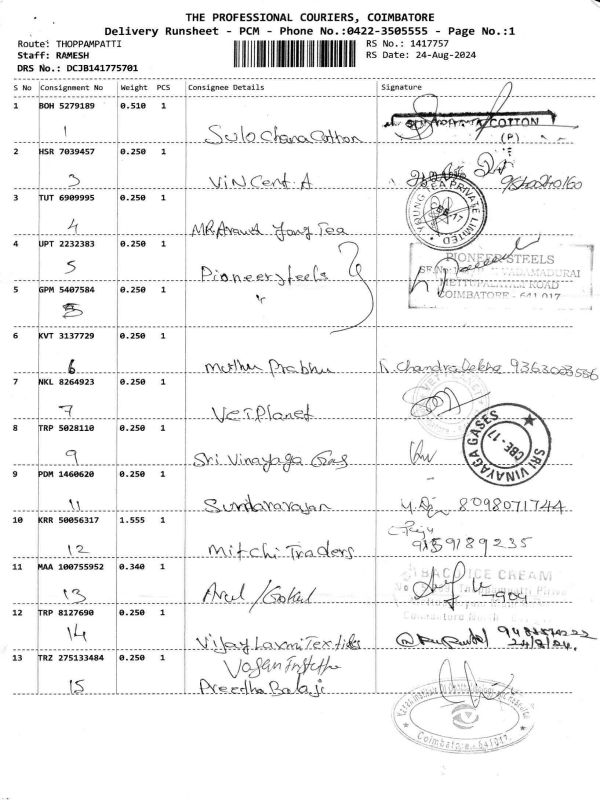 THE PROFESSIONAL COURIERS, COIMBATORE
Delivery Runsheet - PCM - Phone No.:0422-3505555 - Page No.:1
Route: THOPPAMPATTI RS No.: 1417757
Staff: RAMESH RS Date: 24-Aug-2024
DRS No.: DCJB141775701
S No Consignment No Weight PCS Consignee Details Signature
1 BOH 5279189 0.510 1
1 Sulochana Cotton COTTON
(P)
2 HSR 7039457 0.250 1
3 Vincent A
3 TUT 6909995 0.250 1 YOUNG TEA PRIVATE LIMITED CBE-17
4 MR Aravind Yong Tea
4 UPT 2232383 0.250 1
5 Pioneer steels PIONEER STEELS
VADAMADURAI
METTUPALAYAM ROAD
COIMBATORE - 641 017
5 GPM 5407584 0.250 1
5
6 KVT 3137729 0.250 1
6 Muthu Prabhu K. Chandralekha 9363003556
7 NKL 8264923 0.250 1
7 Vet Planet VET PLANET
8 TRP 5028110 0.250 1
9 Sri Vinayaga Gas SRI VINAYAGA GASES CBE-17
9 PDM 1460620 0.250 1
11 Sundararajan 8098071744
10 KRR 50056317 1.555 1
12 Mitchi Traders 9159189235
11 MAA 100755952 0.340 1
13 Arul / Gokul ICE CREAM
12 TRP 8127690 0.250 1
14 Vijay Laxmi Textiles 24/8/24.
13 TRZ 275133484 0.250 1 Vasan Institute
15 Preedha Balaji
Coimbatore - 641017.